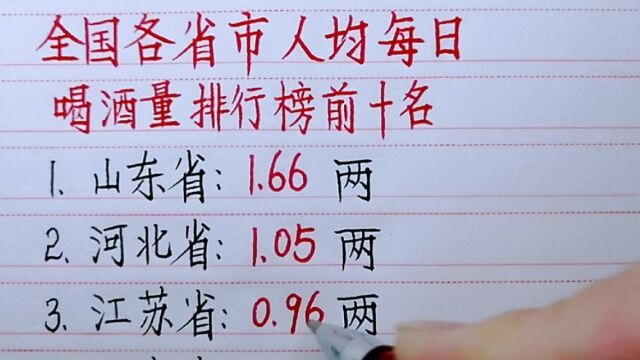 全国各省市人均每日
喝酒量排行榜前十名
1. 山东省: 1.66 两
2. 河北省: 1.05 两
3. 江苏省: 0.96 两